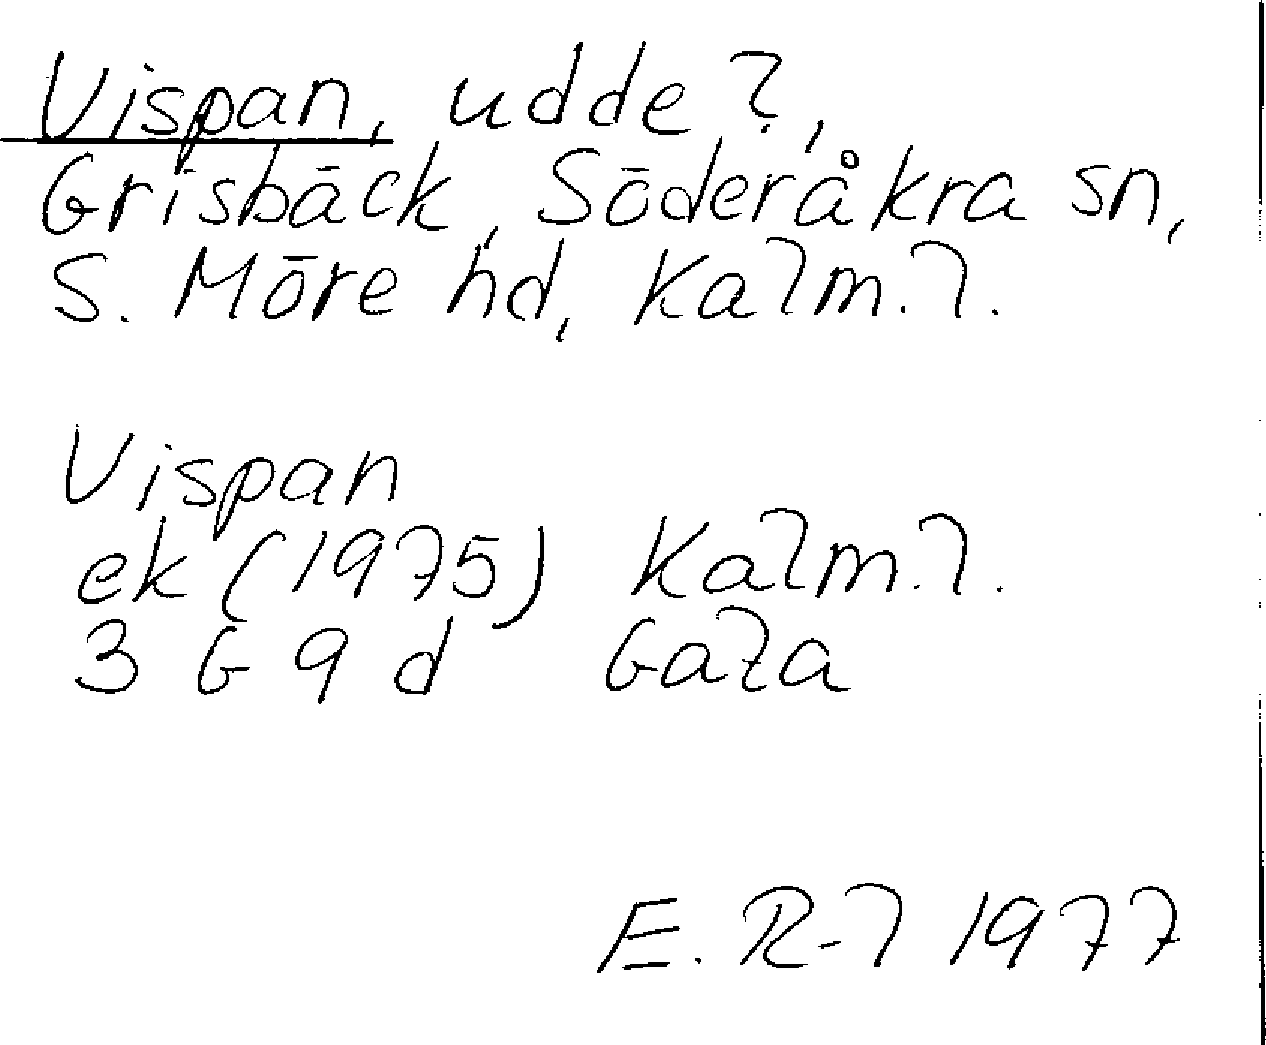 Vispan, udde?,
Grisbäck, Söderåkra sn,
S. Möre hd, Kalm.l.
Vispan
ek (1975) Kalm.l.
3 G 9 d
E. R-l 1977